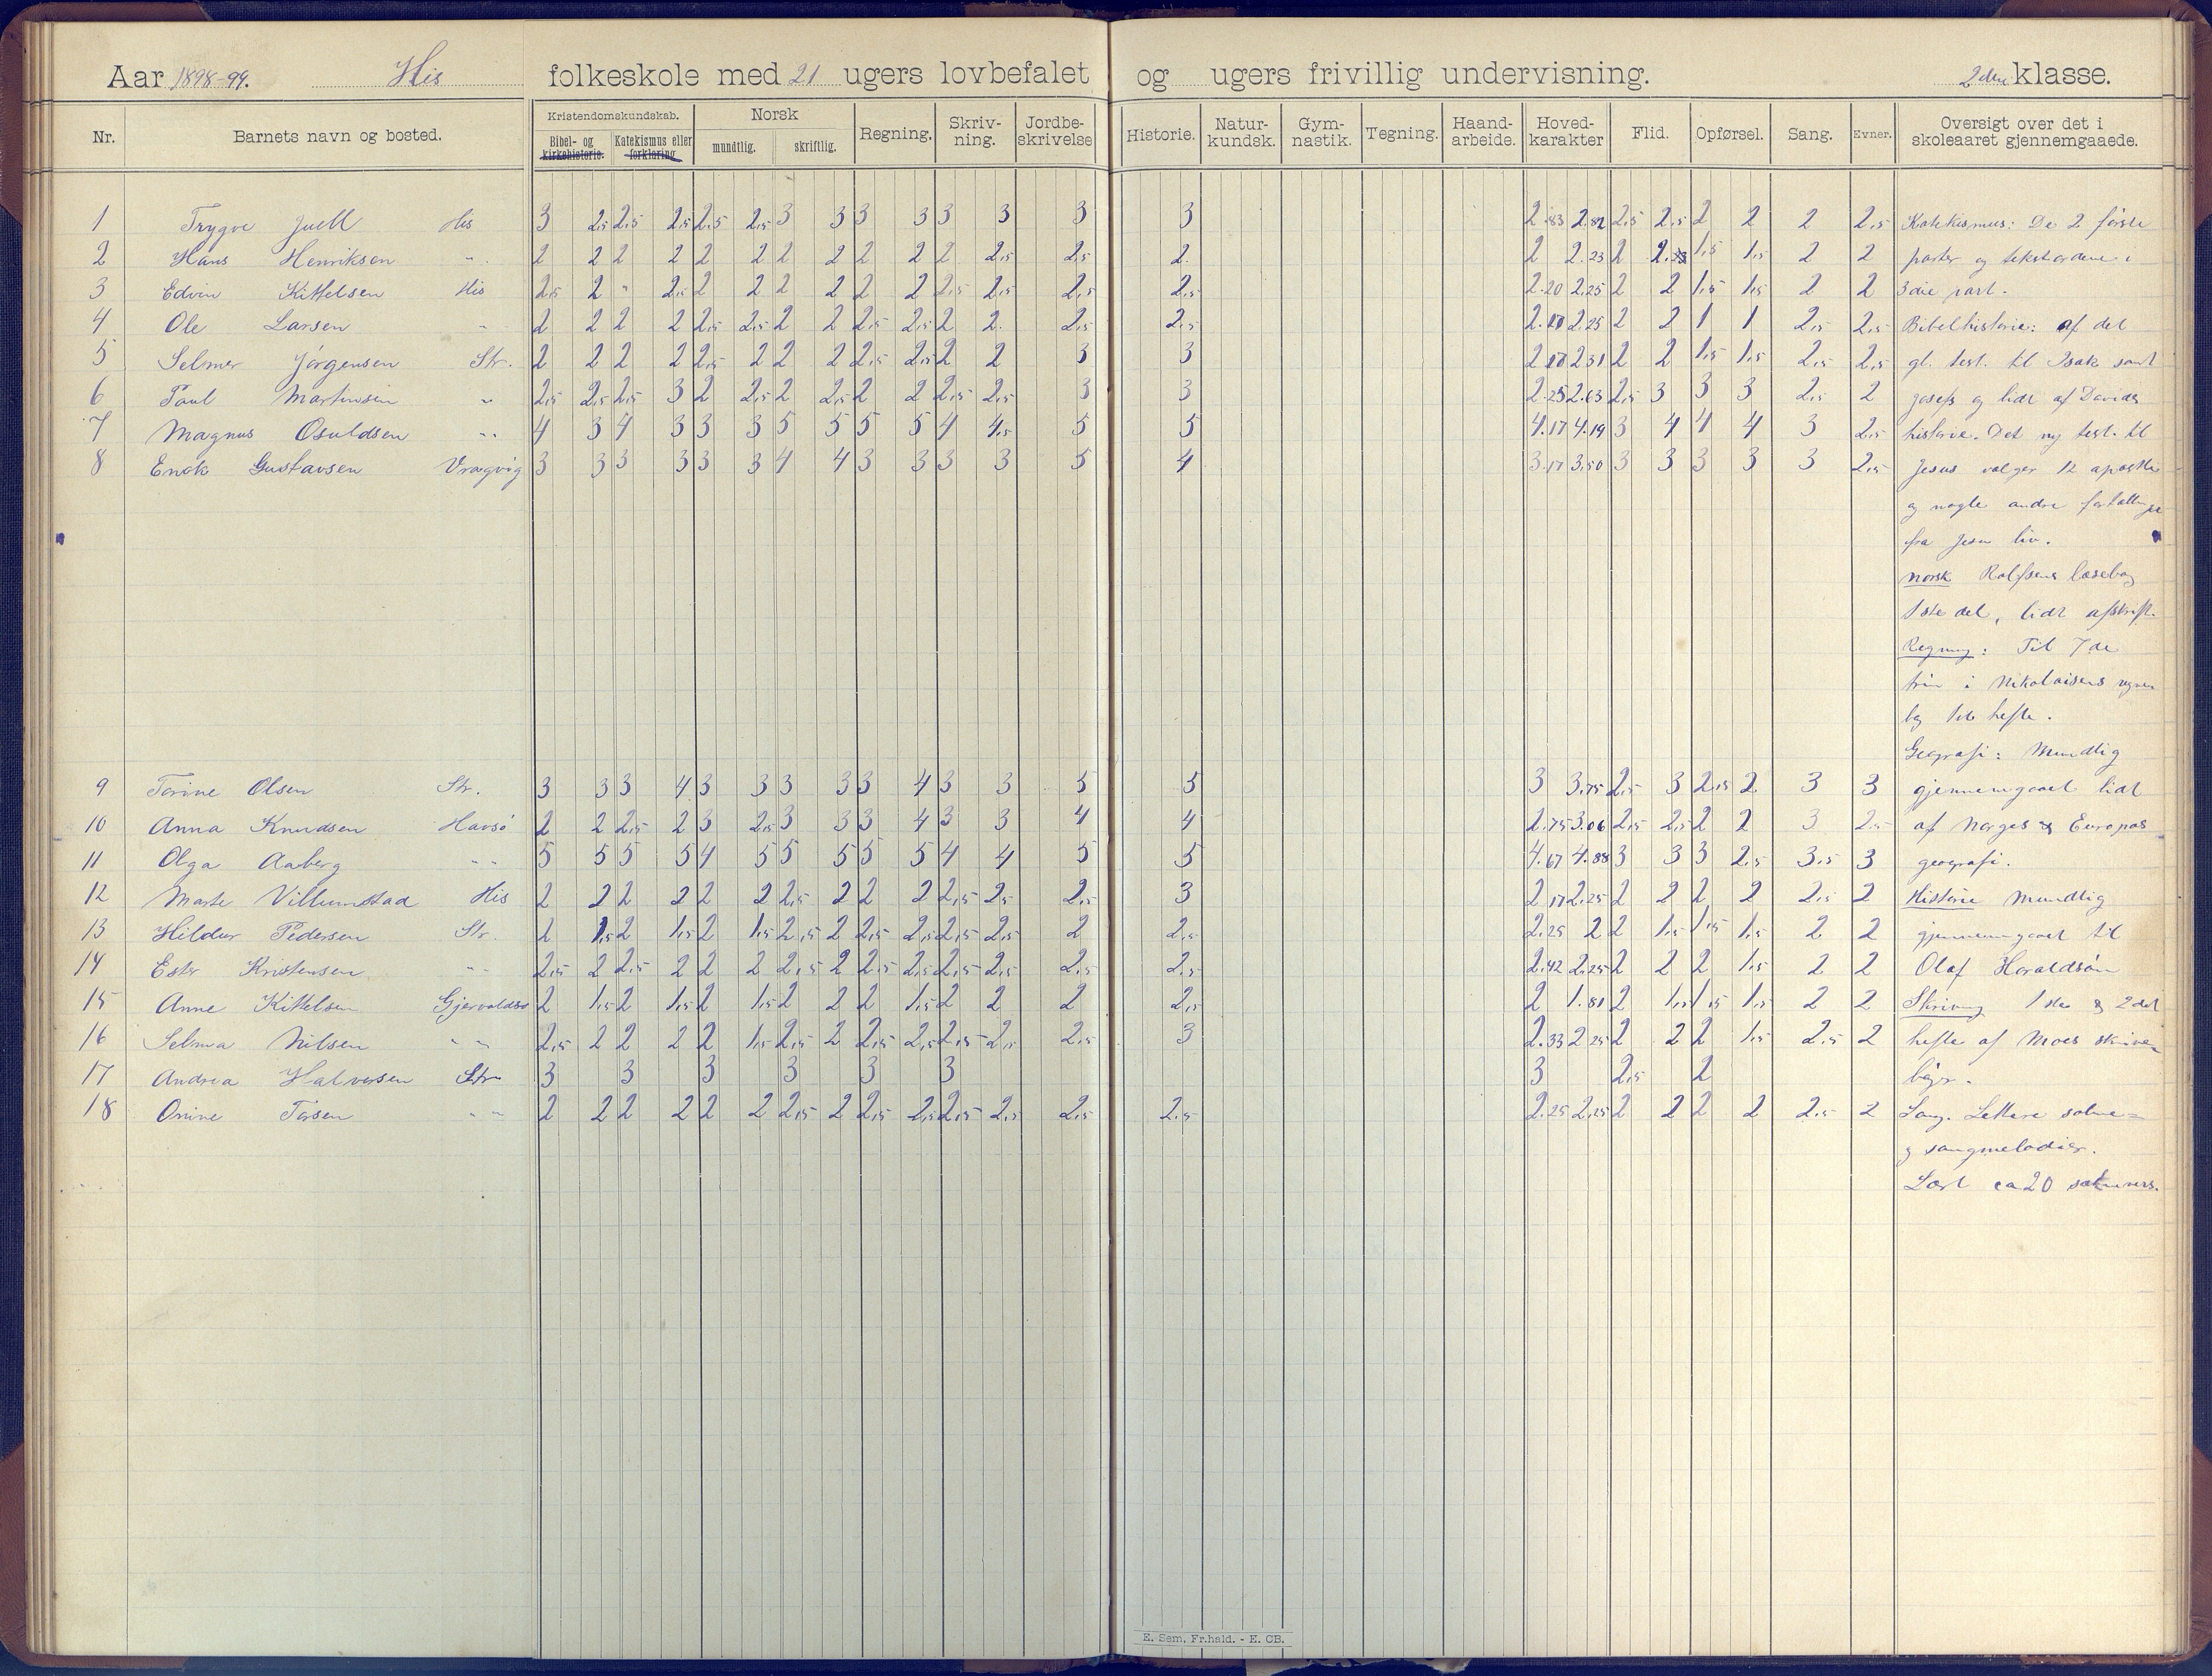 Aar 1898-99. His folkeskole med 21 ugers lovbefalet og ugers frivillig undervisning. 2den klasse.
Nr. Barnets navn og bosted. Kristendomskundskab. Bibel- og kirkehistorie. Katekismus eller forklaring Norsk mundtlig. skriftlig. Regning. Skriv-ning. Jordbe-skrivelse Historie. Natur-kundsk. Gym-nastik. Tegning. Haand-arbeide. Hoved-karakter Flid. Opførsel. Sang. Evner. Oversigt over det i skoleaaret gjennemgaaede.
1 Trygve Juell His 3 2,5 2,5 2,5 2,5 2,5 3 3 3 3 3 3 3 3 2.83 2.82 2,5 2,5 2 2 2 2,5 Katekismus: De 2 første
2 Hans Henriksen " 2 2 2 2 2 2 2 2 2 2 2 2,5 2,5 2. 2 2.23 2 1,5 1,5 2 2 parter og tekstordene i
3 Edvin Kittelsen His 2,5 2 " 2,5 2 2 2 2 2 2 2,5 2,5 2,5 2,5 2.20 2.25 2 2 1,5 1,5 2 2 3die part.
4 Ole Larsen " 2 2 2 2 2,5 2,5 2 2 2,5 2,5 2 2. 2,5 2,5 2.17 2.25 2 2 1 1 2,5 2,5 Bibelhistorie: af det
5 Selmer Jørgensen Str. 2 2 2 2 2,5 2 2 2 2,5 2,5 2 2 3 3 2.17 2.31 2 2 1,5 1,5 2,5 2,5 gl. test. til Isak samt
6 Paul Martinsen " 2,5 2,5 2,5 3 2 2,5 2 2,5 2 2 2,5 2,5 3 3 2.25 2.63 2,5 3 3 3 2,5 2 Josefs og lidt af Davids
7 Magnus Osuldsen " 4 3 4 3 3 3 5 5 5 5 4 4,5 5 5 4.17 4.19 3 4 4 4 3 2,5 historie. Det ny test. til
8 Enok Gustavsen Vragvig 3 3 3 3 3 3 4 4 3 3 3 3 5 4 3.17 3.50 3 3 3 3 3 2,5 Jesus vælger 12 apostle
og nogle andre fortællinger
fra Jesu liv.
Norsk Rolfsens læsebog
1ste del, lidt afskrift.
Regning: Til 7de
trin i Nikolaisens regne
bog 1ste hefte.
Geografi: Mundtlig
9 Torine Olsen Str. 3 3 3 4 3 3 3 3 3 4 3 3 5 5 3 3.75 2,5 3 2,5 2. 3 3 gjennemgaaet lidt
10 Anna Knudsen Havsø 2 2 2,5 2 3 2,5 3 3 3 4 3 3 4 4 2.75 3.06 2,5 2,5 2 2 3 2,5 af Norges & Europas
11 Olga Aaberg " 5 5 5 5 4 5 5 5 5 5 4 4 5 5 4.67 4.88 3 3 3 2,5 3,5 3 geografi.
12 Marte Villumstad His 2 2 2 2 2 2 2,5 2 2 2 2,5 2,5 2,5 3 2.17 2.25 2 2 2 2 2,5 2 Historie mundtlig
13 Hildur Pedersen Str. 2 1,5 2 1,5 2 1,5 2,5 2 2,5 2,5 2,5 2,5 2 2,5 2.25 2 2 1,5 1,5 1,5 2 2 gjennemgaaet til
14 Ester Kristensen " 2,5 2 2,5 2 2 2 2,5 2 2,5 2,5 2,5 2,5 2,5 2,5 2.42 2.25 2 2 2 1,5 2 2 Olaf Haraldsøn
15 Anne Kittelsen Gjervoldsø 2 1,5 2 1,5 2 1,5 2 2 2 1,5 2 2 2 2,5 2 1.81 2 1,5 1,5 1,5 2 2 Skrivning 1ste & 2det
16 Selma Nilsen " 2,5 2 2 2 2 1,5 2,5 2 2,5 2,5 2,5 2,5 2,5 3 2.33 2.25 2 2 2 1,5 2,5 2 hefte af Moes skrive
17 Andrea Halvorsen Str 3 3 3 3 3 3 3 2,5 2 bøger.
18 Onine Tørsen " 2 2 2 2 2 2 2,5 2 2,5 2,5 2,5 2,5 2,5 2,5 2.25 2.25 2 2 2 2 2,5 2 Sang. Lettere salme=
og sangmelodier.
Lært ca 20 salmevers.
E. Sem, Fr.hald. - E. CB.